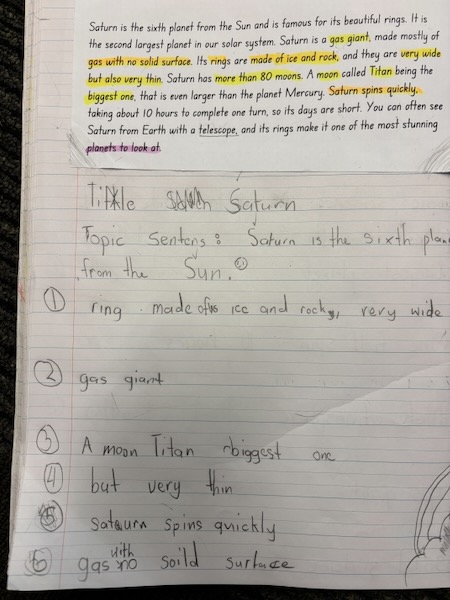 Saturn is the sixth planet from the Sun and is famous for its beautiful rings. It is
the second largest planet in our solar system. Saturn is a gas giant, made mostly of
gas with no solid surface. Its rings are made of ice and rock, and they are very wide
but also very thin. Saturn has more than 80 moons. A moon called Titan being the
biggest one, that is even larger than the planet Mercury. Saturn spins quickly,
taking about 10 hours to complete one turn, so its days are short. You can often see
Saturn from Earth with a telescope, and its rings make it one of the most stunning
planets to look at.
Title Saturn
Topic Sentens: Saturn is the sixth plan
from the Sun.
1 ring made of ice and rock, very wide
2 gas giant
3 A moon Titan biggest one
4 but very thin
5 saturn spins quickly
6 gas with no soild surface